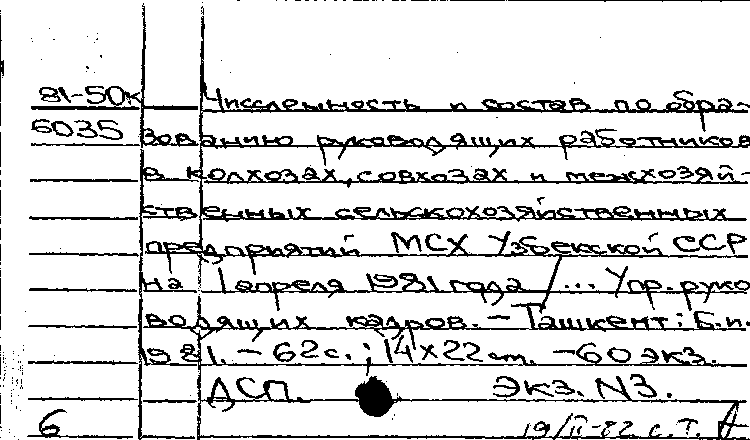 81-50к Численность и состав по обра-
6035 зованию руководящих работников
в колхозах, совхозах и межхозяй-
ственных сельскохозяйственных
предприятий МСХ Узбекской ССР
на 1 апреля 1981 года /... Упр. руко
водящих кадров. - Ташкент: Б.и.
1981. - 62 с.; 14х22 см. - 60 экз.
ДСП. Экз. N3.
6 19/II-82 с.Т.